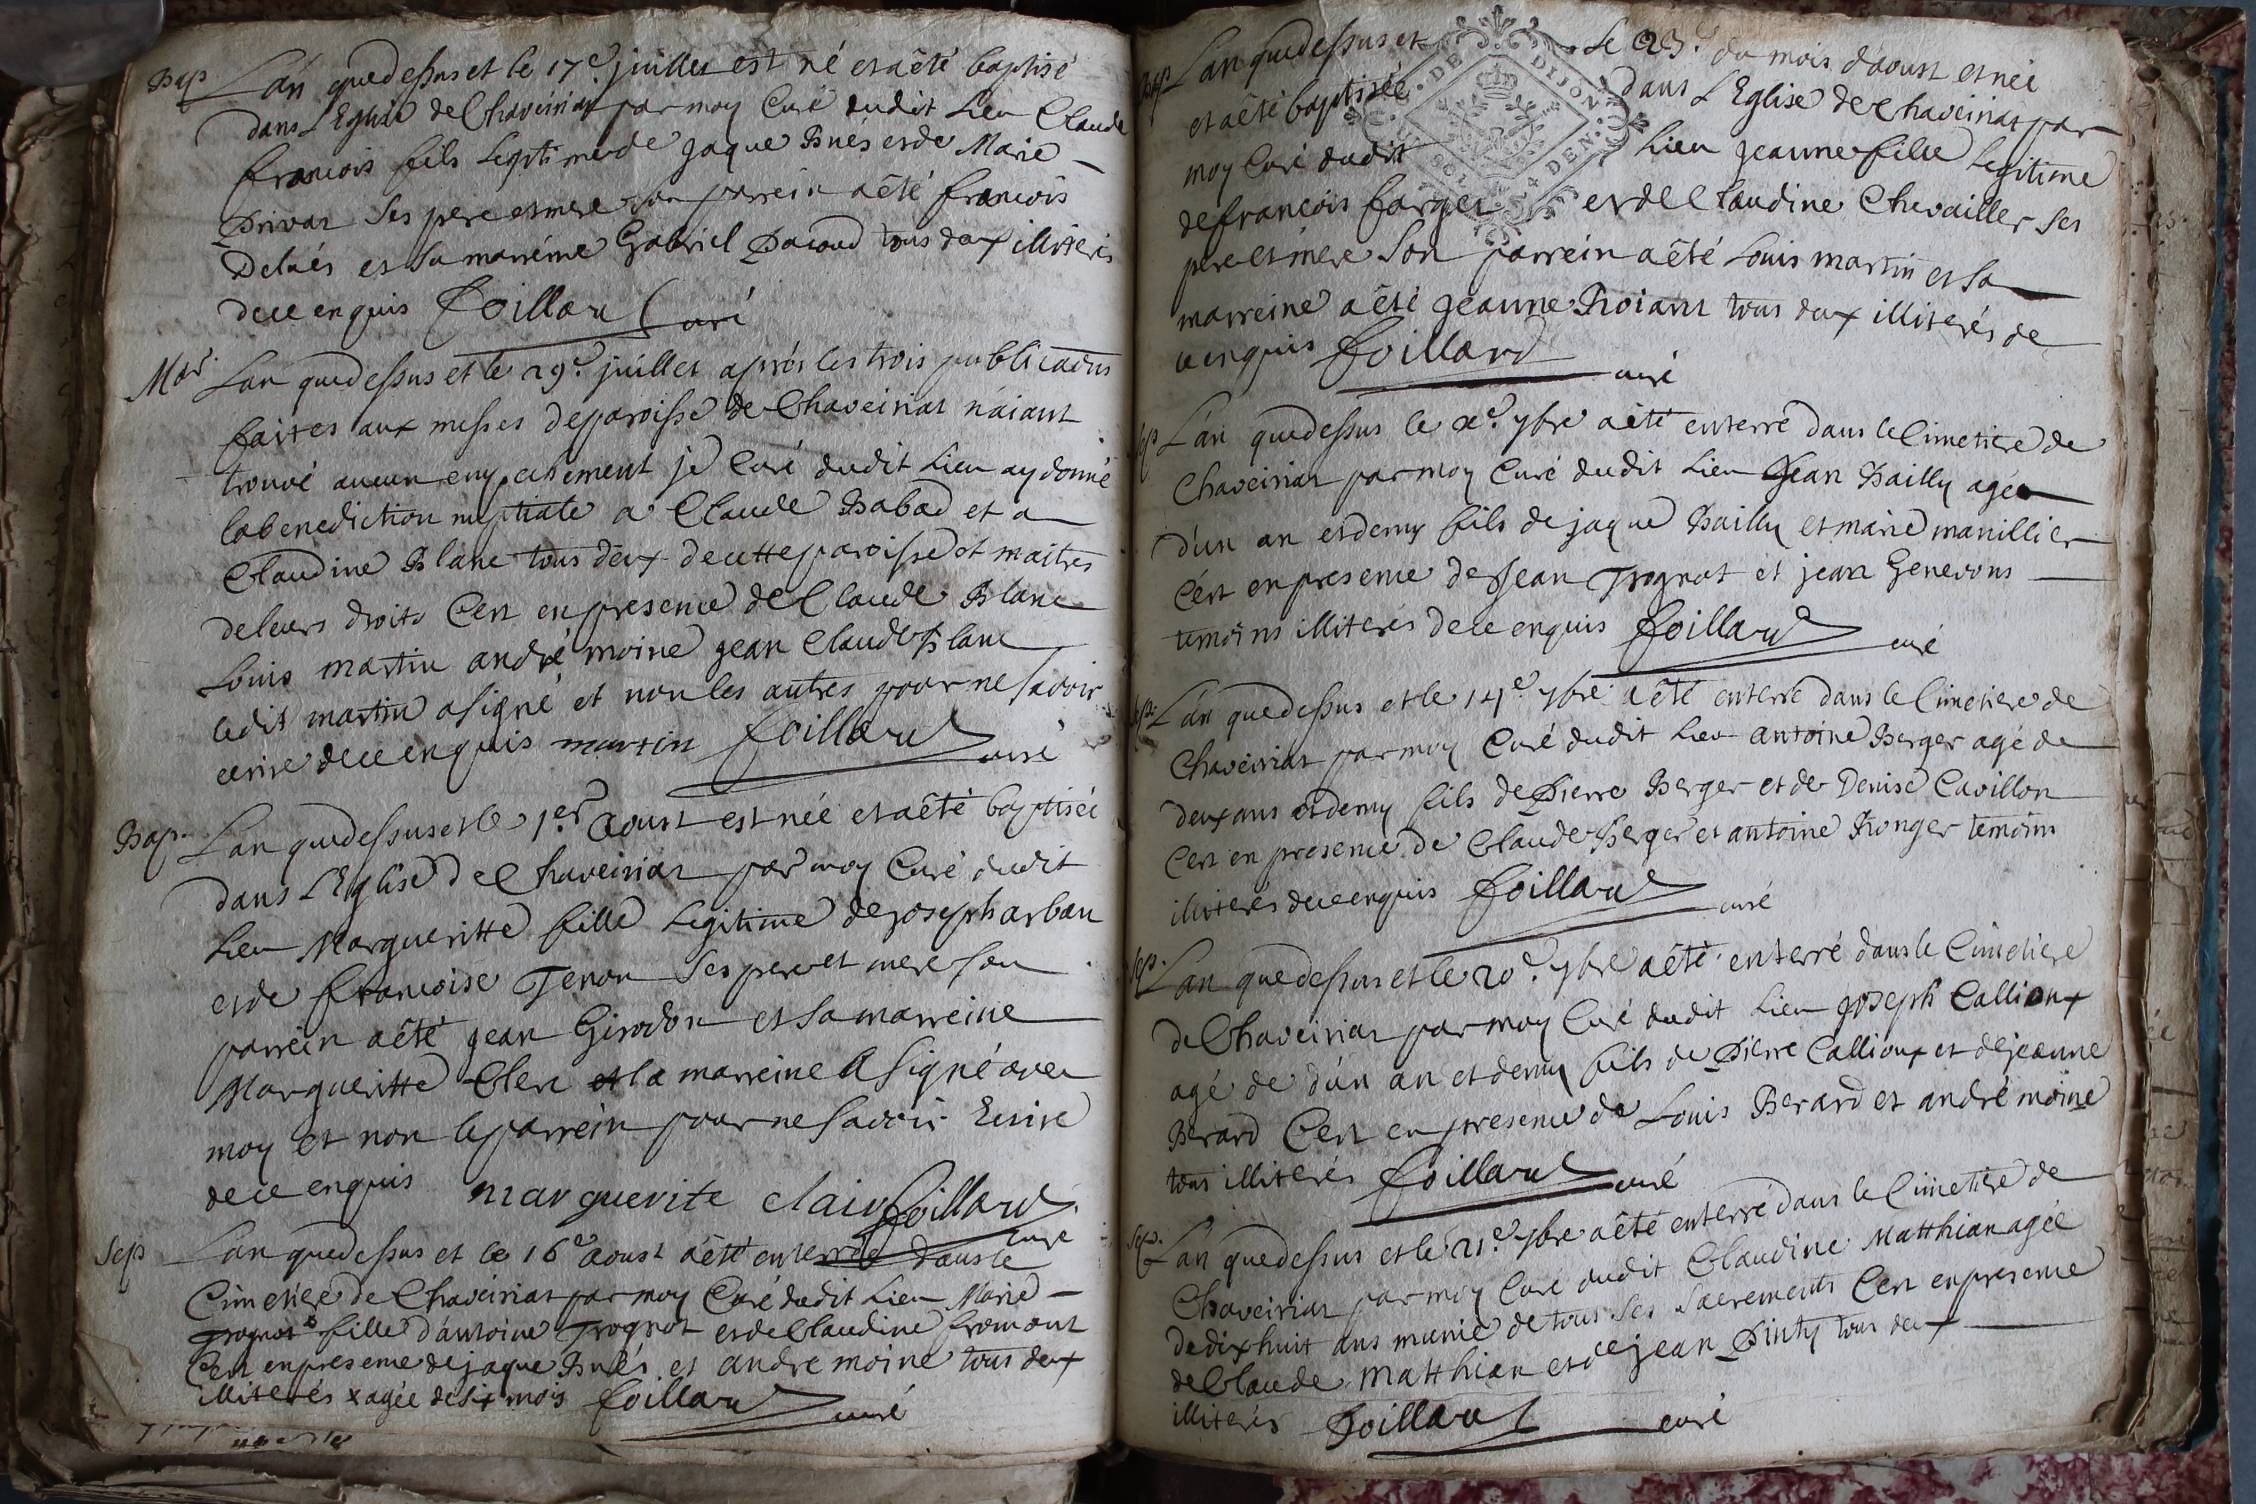 Bap L'an que dessus et le 17e. juillet est né et a êté baptisé
dans L'Eglise de Chaveiriat par moy Curé dudit Lieu Claude
francois fils Legitime de jaque Bués et de Marie
Privat Ses pere et mere son parrein a êté francois
Delués et sa marreine Gabriel Pacoud tous deux illiterés
de ce enquis foillard Curé
Mar. L'an que dessus et le 29e. juillet aprés les trois publications
faites aux messes de paroisse de Chaveiriat n'aiant
trouvé aucun empechement je Curé dudit Lieu ay donné
la benediction nuptiale a Claude Babad et a
Claudine Blanc tous deux de cette paroisse et maitres
de leurs droits C'est en presence de Claude Blanc
Louis martin andré moine jean Claude Blanc
ledit martin a signé et non les autres pour ne savoir
ecrire de ce enquis martin foillard curé
Bap. L'an que dessus et le 1er aoust est née et a êté baptisée
dans L'Eglise de Chaveiriat par moy Curé dudit
Lieu Margueritte fille Legitime de joseph arban
et de francoise Tenon Ses pere et mere son
parrein a êté jean Girodon et sa marreine
Margueritte Clerc et la marreine a signé avec
moy et non le parrein pour ne savoir Ecrire
de ce enquis marguerite clair foillard
curé
Sep L'an que dessus et le 16e aoust a êté enterrée dans le
Cimetiere de Chaveiriat par moy Curé dudit Lieu Marie
Trognot x fille d'antoine Trognot et de Claudine fromont
C'est en presence de jaque Bués et andre moine tous deux
illiterés x agée de six mois foillard curé
Bap L'an que dessus et le 23e. du mois d'aoust est née
et a êté baptisée dans L'Eglise de Chaveiriat par
moy Curé dudit Lieu jeanne fille Legitime
de francois farget et de Claudine Chevailler ses
pere et mere Son parrein a êté Louis martin et sa
marreine a êté jeanne Proiant tous deux illiterés de
ce enquis foillard curé
DE DIJON
SOL 4 DEN.
Sep L'an que dessus le xe. 7bre a êté enterré dans le Cimetiere de
Chaveiriat par moy Curé dudit Lieu Jean Bailly agé
d'un an et demy fils de jaque Bailly et marie manillier
C'est en presence de Jean Trognot et jean Genevons
temoins illiterés de ce enquis foillard curé
Sep. L'an que dessus et le 14e 7bre a êté enterré dans le Cimetiere de
Chaveiriat par moy Curé dudit Lieu antoine Berger agé de
deux ans et demy fils de Pierre Berger et de Denise Cavillon
C'est en presence de Claude Berger et antoine Ronger temoins
illiterés de ce enquis foillard curé
Sep. L'an que dessus et le 20e. 7bre a êté enterré dans le Cimetiere
de Chaveiriat par moy Curé dudit Lieu joseph Callioux
agé de d'un an et demy fils de Pierre Callioux et de jeanne
Berard C'est en presence de Louis Berard et andré moine
tous illiterés foillard curé
Sep. L'an que dessus et le 21e. 7bre a êté enterré dans le Cimetiere de
Chaveiriat par moy Curé dudit Claudine Matthian agée
de dixhuit ans munie de tous ses sacrements C'est en presence
de Claude Matthian et de jean Pinty tous deux
illiterés foillard curé